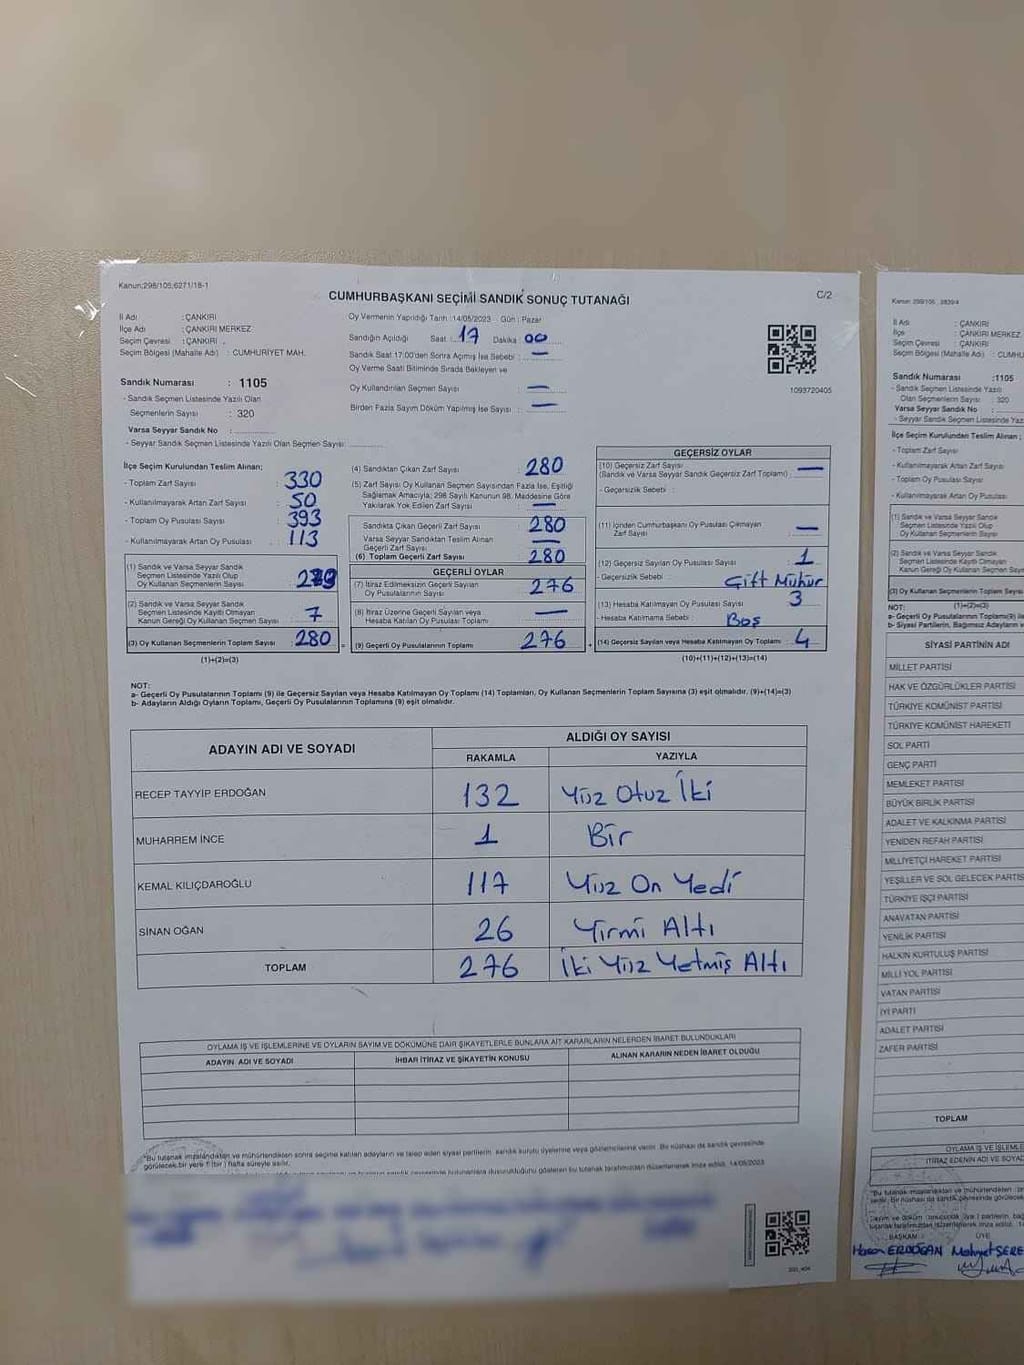 Kanun:298/105,6271/18-1
CUMHURBAŞKANI SEÇİMİ SANDIK SONUÇ TUTANAĞI
C/2
İl Adı : ÇANKIRI
İlçe Adı : ÇANKIRI MERKEZ
Seçim Çevresi : ÇANKIRI
Seçim Bölgesi (Mahalle Adı) : CUMHURİYET MAH.
Sandık Numarası : 1105
- Sandık Seçmen Listesinde Yazılı Olan
Seçmenlerin Sayısı : 320
Varsa Seyyar Sandık No :
- Seyyar Sandık Seçmen Listesinde Yazılı Olan Seçmen Sayısı:
Oy Vermenin Yapıldığı Tarih : 14/05/2023 - Gün : Pazar
Sandığın Açıldığı Saat : 17 Dakika 00
Sandık Saat 17:00'den Sonra Açılmış İse Sebebi : —
Oy Verme Saati Bitiminde Sırada Bekleyen ve
Oy Kullandırılan Seçmen Sayısı : —
Birden Fazla Sayım Döküm Yapılmış İse Sayısı : —
1093720405
İlçe Seçim Kurulundan Teslim Alınan;
- Toplam Zarf Sayısı : 330
- Kullanılmayarak Artan Zarf Sayısı : 50
- Toplam Oy Pusulası Sayısı : 393
- Kullanılmayarak Artan Oy Pusulası : 113
(1) Sandık ve Varsa Seyyar Sandık
Seçmen Listesinde Yazılı Olup
Oy Kullanan Seçmenlerin Sayısı
(2) Sandık ve Varsa Seyyar Sandık
Seçmen Listesinde Kayıtlı Olmayan
Kanun Gereği Oy Kullanan Seçmen Sayısı 7
(3) Oy Kullanan Seçmenlerin Toplam Sayısı 280
(1)+(2)=(3)
(4) Sandıktan Çıkan Zarf Sayısı : 280
(5) Zarf Sayısı Oy Kullanan Seçmen Sayısından Fazla İse, Eşitliği
Sağlamak Amacıyla; 298 Sayılı Kanunun 98. Maddesine Göre
Yakılarak Yok Edilen Zarf Sayısı : —
Sandıkta Çıkan Geçerli Zarf Sayısı : 280
Varsa Seyyar Sandıktan Teslim Alınan
Geçerli Zarf Sayısı : —
(6) Toplam Geçerli Zarf Sayısı : 280
GEÇERLİ OYLAR
(7) İtiraz Edilmeksizin Geçerli Sayılan
Oy Pusulalarının Sayısı : 276
(8) İtiraz Üzerine Geçerli Sayılan veya
Hesaba Katılan Oy Pusulaları Toplamı : —
(9) Geçerli Oy Pusulalarının Toplamı : 276
GEÇERSİZ OYLAR
(10) Geçersiz Zarf Sayısı
(Sandık ve Varsa Seyyar Sandık Geçersiz Zarf Toplamı) : —
- Geçersizlik Sebebi :
(11) İçinden Cumhurbaşkanı Oy Pusulası Çıkmayan
Zarf Sayısı : —
(12) Geçersiz Sayılan Oy Pusulası Sayısı : 1
- Geçersizlik Sebebi : Çift Mühür
(13) Hesaba Katılmayan Oy Pusulası Sayısı : 3
- Hesaba Katılmama Sebebi : Boş
(14) Geçersiz Sayılan veya Hesaba Katılmayan Oy Toplamı : 4
(10)+(11)+(12)+(13)=(14)
NOT:
a- Geçerli Oy Pusulalarının Toplamı (9) ile Geçersiz Sayılan veya Hesaba Katılmayan Oy Toplamı (14) Toplamları, Oy Kullanan Seçmenlerin Toplam Sayısına (3) eşit olmalıdır. (9)+(14)=(3)
b- Adayların Aldığı Oyların Toplamı, Geçerli Oy Pusulalarının Toplamına (9) eşit olmalıdır.
ADAYIN ADI VE SOYADI
ALDIĞI OY SAYISI
RAKAMLA YAZIYLA
RECEP TAYYİP ERDOĞAN 132 Yüz Otuz İki
MUHARREM İNCE 1 Bir
KEMAL KILIÇDAROĞLU 117 Yüz On Yedi
SİNAN OĞAN 26 Yirmi Altı
TOPLAM 276 İki Yüz Yetmiş Altı
OYLAMA İŞ VE İŞLEMLERİNE VE OYLARIN SAYIM VE DÖKÜMÜNE DAİR ŞİKAYETLERLE BUNLARA AİT KARARLARIN NELERDEN İBARET BULUNDUKLARI
ADAYIN ADI VE SOYADI İHBAR İTİRAZ VE ŞİKAYETİN KONUSU ALINAN KARARIN NEDEN İBARET OLDUĞU
"Bu tutanak imzalandıktan ve mühürlendikten sonra seçime katılan adayların ve talep eden siyasi partilerin, sandık kurulu üyelerine veya gözlemcilerine verilir. Bir nüshası da sandık çevresinde
görülecek bir yere 1 (bir) hafta süreyle asılır.
Kanun: 298/105, 2839/4
İl Adı : ÇANKIRI
İlçe : ÇANKIRI MERKEZ
Seçim Çevresi : ÇANKIRI
Seçim Bölgesi (Mahalle Adı) : CUMHU
Sandık Numarası :1105
- Sandık Seçmen Listesinde Yazılı
Olan Seçmenlerin Sayısı : 320
Varsa Seyyar Sandık No :
- Seyyar Sandık Seçmen Listesinde Yaz
İlçe Seçim Kurulundan Teslim Alınan ;
- Toplam Zarf Sayısı
- Kullanılmayarak Artan Zarf Sayısı
- Toplam Oy Pusulası Sayısı
- Kullanılmayarak Artan Oy Pusulası
(1) Sandık ve Varsa Seyyar Sandık
Seçmen Listesinde Yazılı Olup
Oy Kullanan Seçmenlerin Sayısı
(2) Sandık ve Varsa Seyyar Sandık
Seçmen Listesinde Kayıtlı Olmayan
Kanun Gereği Oy Kullanan Seçmen Sayıs
(3) Oy Kullanan Seçmenlerin Toplam Sayısı
(1)+(2)=(3)
NOT:
a- Geçerli Oy Pusulalarının Toplamı(9) ile
b- Siyasi Partilerin, Bağımsız Adayların v
SİYASİ PARTİNİN ADI
MİLLET PARTİSİ
HAK VE ÖZGÜRLÜKLER PARTİSİ
TÜRKİYE KOMÜNİST PARTİSİ
TÜRKİYE KOMÜNİST HAREKETİ
SOL PARTİ
GENÇ PARTİ
MEMLEKET PARTİSİ
BÜYÜK BİRLİK PARTİSİ
ADALET VE KALKINMA PARTİSİ
YENİDEN REFAH PARTİSİ
MİLLİYETÇİ HAREKET PARTİSİ
YEŞİLLER VE SOL GELECEK PARTİS
TÜRKİYE İŞÇİ PARTİSİ
ANAVATAN PARTİSİ
YENİLİK PARTİSİ
HALKIN KURTULUŞ PARTİSİ
MİLLİ YOL PARTİSİ
VATAN PARTİSİ
İYİ PARTİ
ADALET PARTİSİ
ZAFER PARTİSİ
TOPLAM
OYLAMA İŞ VE İŞLEMLE
İTİRAZ EDENİN ADI VE SOYAD
BAŞKAN ÜYE
Hasan ERDOĞAN Mehmet ŞERE